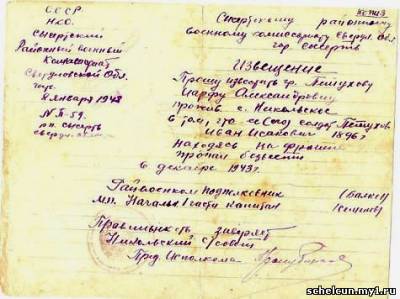 Копия
СССР
НКО.
Сысертский
Районный военный
Комиссариат
Свердловской Обл.
8 января 1948
N П-59.
рп. Сысерть
Свердл. Обл.
Сысертскому районному
военному комиссариату Свердл. Обл
гор Сысерть
Извещение
Прошу известить гр. Петухову
Александровну
прожив. с. Никольское
в том, что её солдат Петухов
Иван Исакович 1896 г
находясь на фронте
пропал безвести
в декабре 1943 г.
Райвоенком подполковник
мп. Начальн 1 части капитан
Правильность заверяет
Никольский с/совет
Пред. Исполкома
schelcun.my1.ru